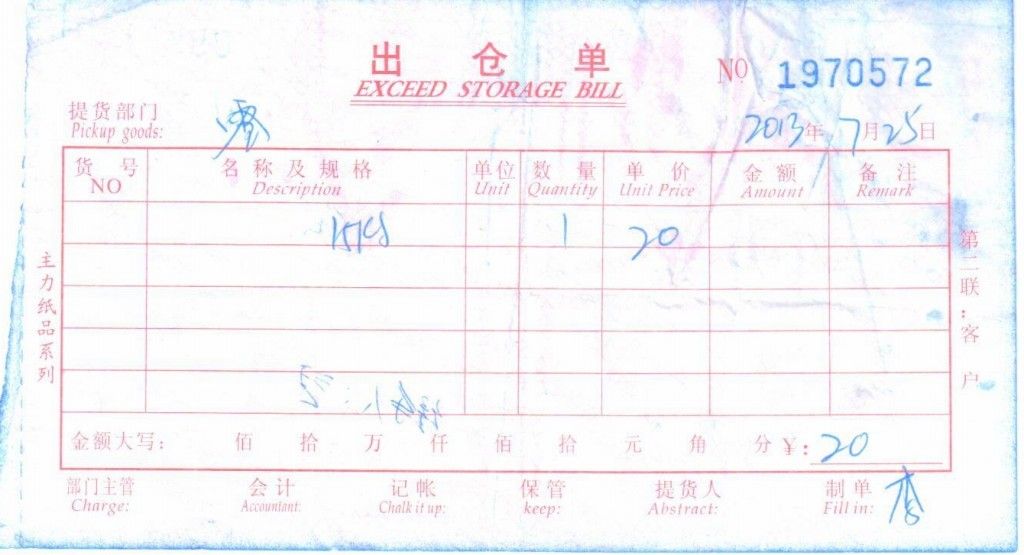 出仓单
EXCEED STORAGE BILL
NO 1970572
提货部门
Pickup goods:
2013年7月25日
货号 名称及规格 单位 数量 单价 金额 备注
NO Description Unit Quantity Unit Price Amount Remark
1 20
主力纸品系列
第二联：客户
金额大写： 佰 拾 万 仟 佰 拾 元 角 分 ¥：20
部门主管 会计 记帐 保管 提货人 制单
Charge: Accountant: Chalk it up: keep: Abstract: Fill in: